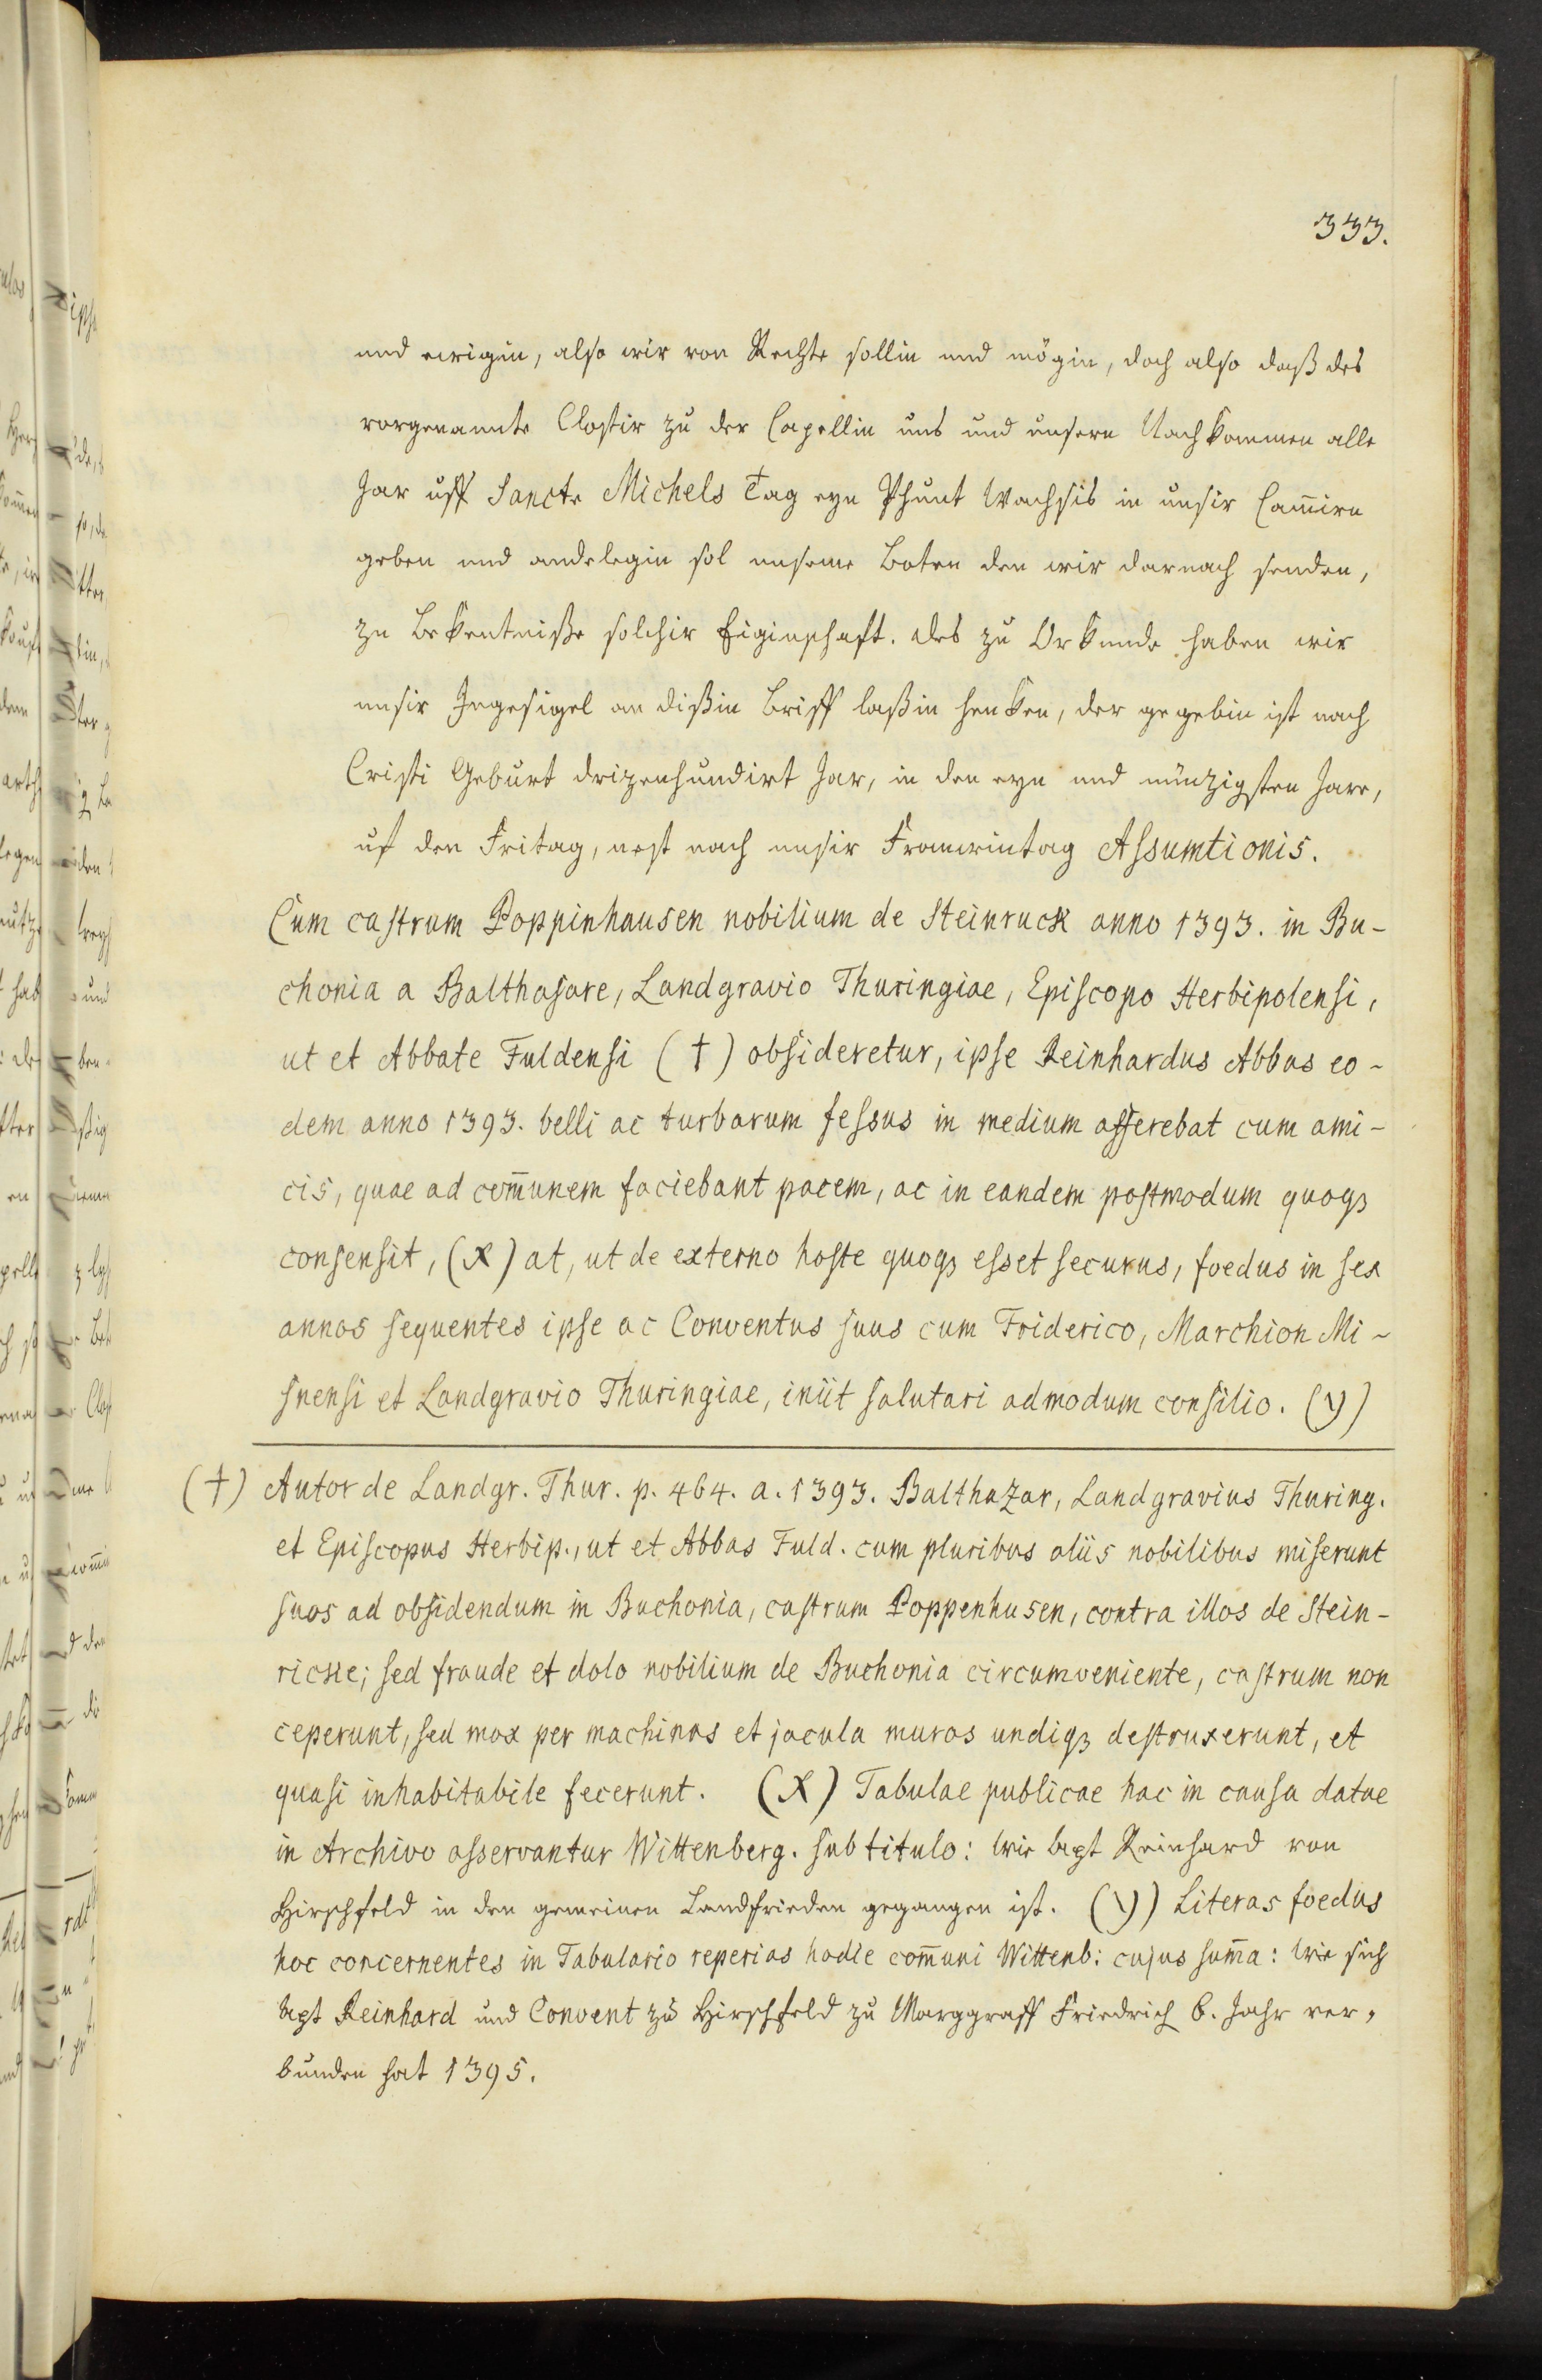 333.
und ewigin, also wir von Rechte sollin und mögin, doch also daß des
vorgenannte Clostir zu der Capellin uns und unsern Nachkommen alle
Jar uff Sancte Michels Tag eyn Phunt Wachsis in unsir Cam̄irn
geben und andelegin sol unseme Boten den wir darnach senden,
zu Bekentniße solchir Eiginschaft. des zu Orkunde haben wir
unsir Ingesigel an dißin Briff laßin henken, der gegebin ist nach
Cristi Geburt drizenhundirt Jar, in den eyn und nünzigsten Jare,
uf den Fritag, nest nach unsir Frauwintag Assumtionis.
Cum castrum Poppinhausen nobilium de Steinruck anno 1393. in Bu-
chonia a Balthasare, Landgravio Thuringiae, Episcopo Herbipolensi,
ut et Abbate Fuldensi (†) obsideretur, ipse Reinhardus Abbas eo-
dem anno 1393. belli ac turbarum fessus in medium afferebat cum ami-
cis, quae ad com̄unem faciebant pacem, ac in eandem postmodum quoqȝ
consensit, (x) at, ut de externo hoste quoqȝ esset securus, foedus in sex
annos sequentes ipse ac Conventus suus cum Friderico, Marchion Mi-
snensi et Landgravio Thuringiae, iniit salutari admodum consilio. (y)
(†) Autor de Landgr. Thur. p. 464. a. 1393. Balthazar, Landgravius Thuring.
et Episcopus Herbip., ut et Abbas Fuld. cum pluribus aliis nobilibus miserunt
suos ad obsidendum in Buchonia, castrum Poppenhusen, contra illos de Stein-
ricke; sed fraude et dolo nobilium de Buchonia circumveniente, castrum non
ceperunt, sed mox per machinas et jacula muros undiqȝ destruxerunt, et
quasi inhabitabile fecerunt. (x) Tabulae publicae hac in causa datae
in Archivo asservantur Wittenberg. sub titulo: Wie Apt Reinhard von
Hirschfeld in den gemeinen Landfrieden gegangen ist. (y) Literas foedus
hoc concernentes in Tabulario reperias hodie com̄uni Wittenb: cujus sum̄a: Wie sich
Apt Reinhard und Convent zu Hirschfeld zu Marggraff Friedrich 6. Jahr ver,
bunden hat 1395.